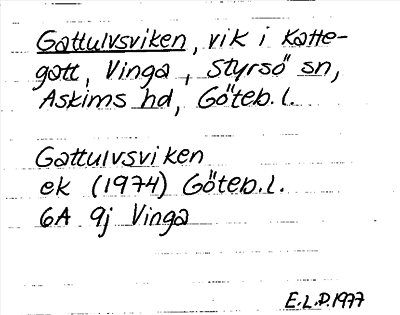 Gattulvsviken, vik i Katte-
gatt, Vinga, Styrsö sn,
Askims hd, Göteb. l.
Gattulvsviken
ek (1974) Göteb. l.
6A 9j Vinga
E.L.P. 1977